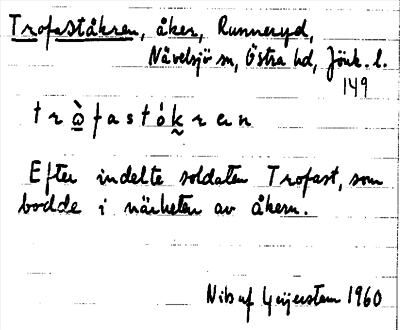 Trofaståkren, åker, Runneryd,
Nävelsjö sn, Östra hd, Jönk. l.
149
tròfastókran
Efter indelte soldaten Trofast, som
bodde i närheten av åkern.
Nils af Geijerstam 1960